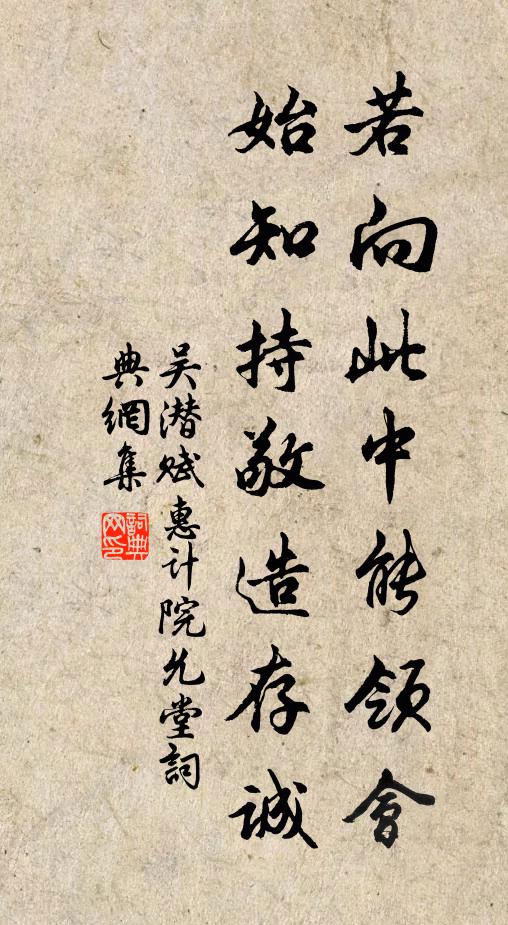 若向此中能領會
始知持敬造存诚
吴潜赋惠计院允堂詞
典網集
詞典网印